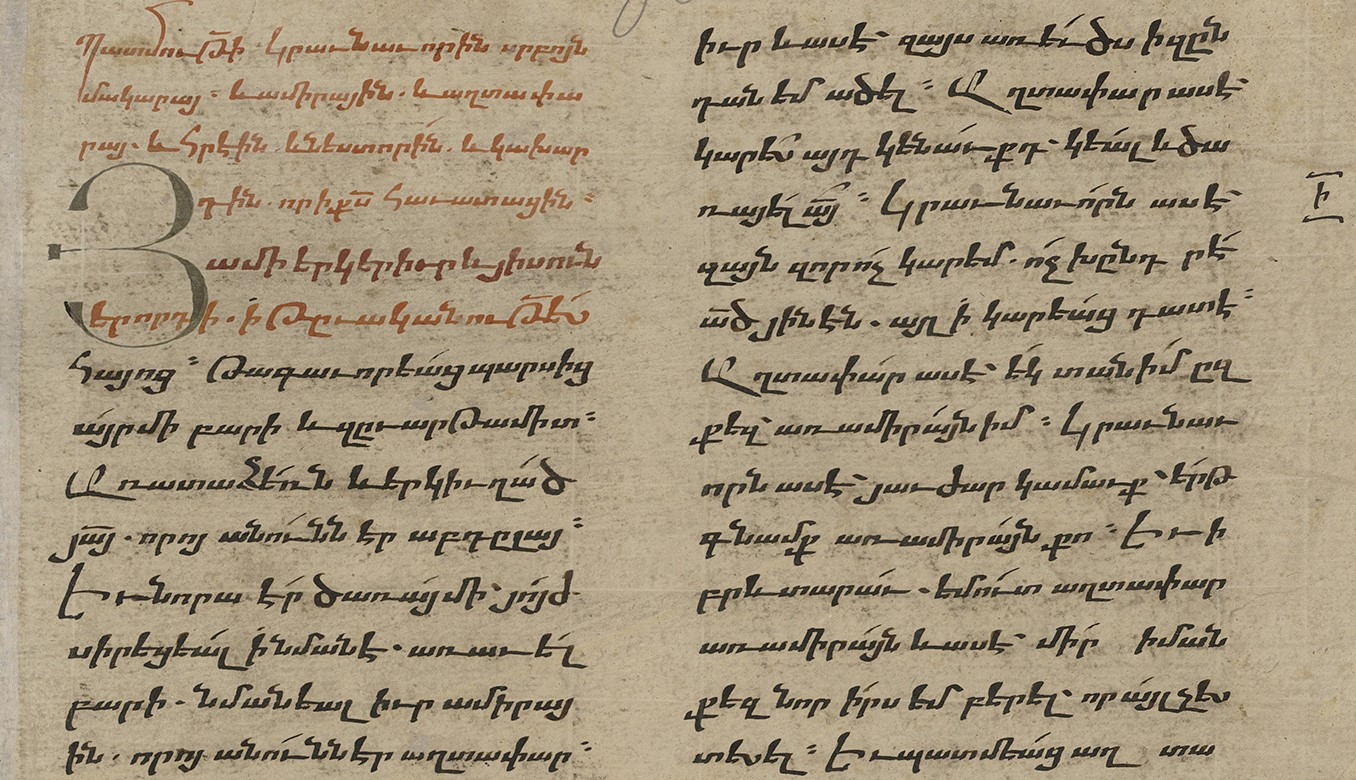 Պատմութի կրաւնաւորին սրբոյն
մակարայ ։ և ամիրային . և աղտափա
րայ . և հրէին . և նեստորին . և կախար
դին . որ ի քս̃ հաւատացին ։
Յամի երկերիւր և յիսուն
երորդի . ի թըւականութե̃ս
հայոց ։ թագաւորեաց պարսից
այր մի բարի և զըւարթամիտ ։
Առատաձեռն և երկիւղած
յա̃յ . որոյ անունն էր աբդըլայ ։
Եւ նորա էր ծառայ մի յոյժ
սիրեցեալ ի նմանէ . առաւել
բարի . նմանեալ իւր ամիրայ
ին . որոյ անունն էր աղտափար ։
իւր և ասէ զայս առ ևծս իզըն
դան եմ ածել ։ Աղտափար ասէ
կարես այդ կենաւքդ կեալ և ծա
ռայել ա̃յ ։ կրաւնաւորն ասէ
զայն զոր ոչ կարեմ . ոչ խընդրէ
ա̃ծ յինէն . այլ ի կարեաց դատէ ։
Աղտափար ասէ եկ տանիմ ըզ
քեզ առ ամիրայն իմ ։ կրաւնաւ
որն ասէ յաւժար կամաւք երթ
գնամք առ ամիրայն քո ։ Եւ ի
բրև տարաւ . եմուտ աղտափար
առ ամիրայն և ասէ միր իման
քեզ նոր իրս եմ բերել որ այլ չես
տեսել ։ Եւ պատմեաց աղ տա
Ի